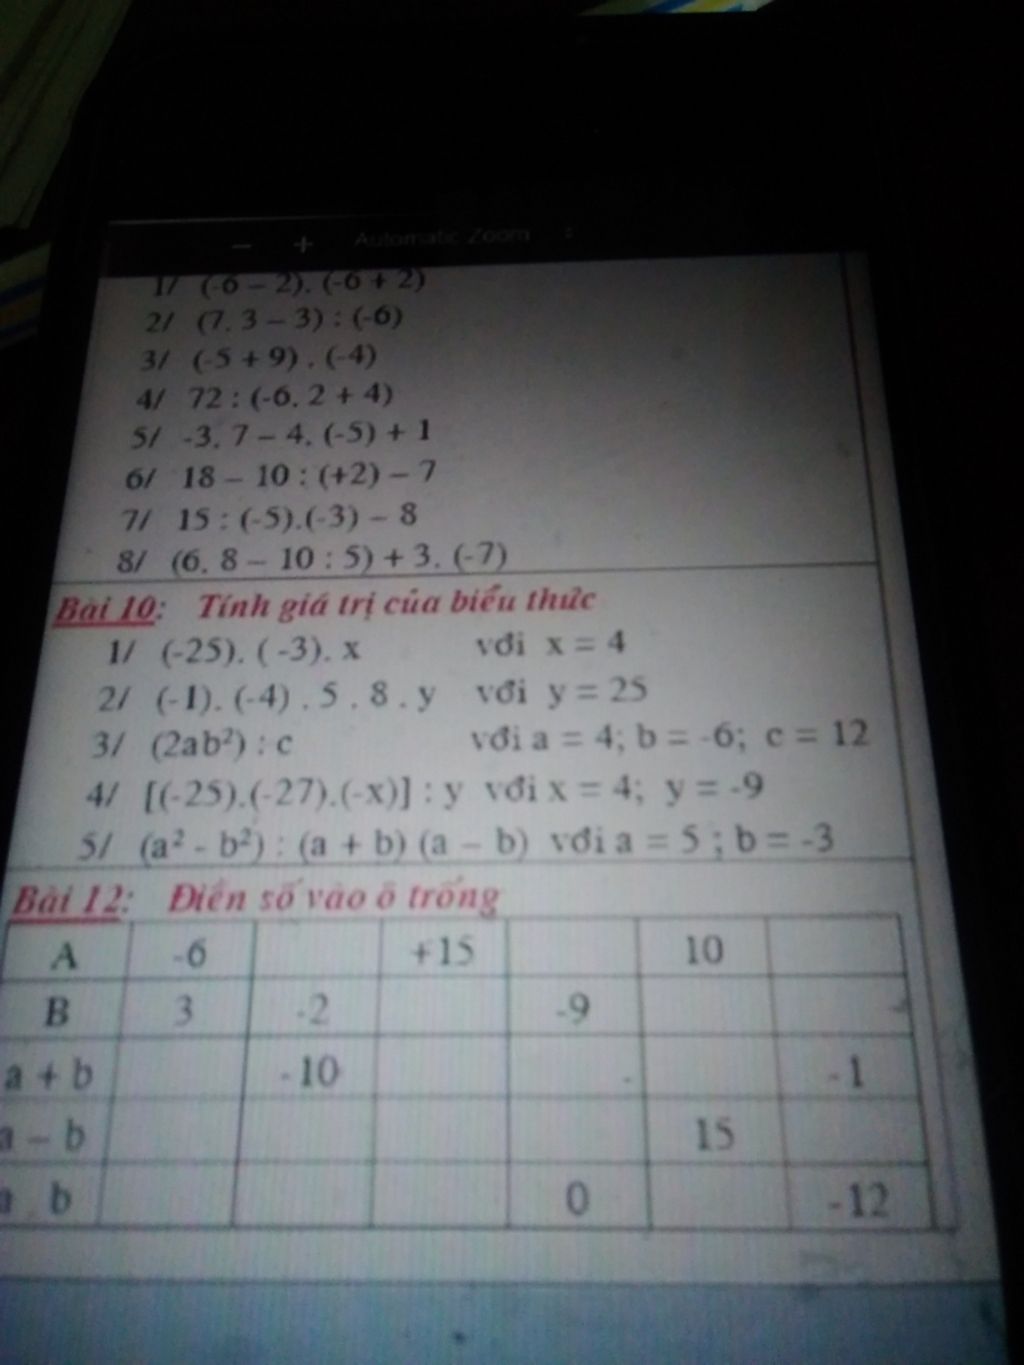 − + Automatic Zoom
1/ (-6 – 2). (-6 + 2)
2/ (7. 3 – 3) : (-6)
3/ (-5 + 9) . (-4)
4/ 72 : (-6. 2 + 4)
5/ -3. 7 – 4. (-5) + 1
6/ 18 – 10 : (+2) – 7
7/ 15 : (-5).(-3) – 8
8/ (6. 8 – 10 : 5) + 3. (-7)
Bài 10: Tính giá trị của biểu thức
1/ (-25). ( -3). x với x = 4
2/ (-1). (-4) . 5 . 8 . y với y = 25
3/ (2ab²) : c với a = 4; b = -6; c = 12
4/ [(-25).(-27).(-x)] : y với x = 4; y = -9
5/ (a² - b²) : (a + b) (a – b) với a = 5 ; b = -3
Bài 12: Điền số vào ô trống
A -6 +15 10
B 3 -2 -9
a + b -10 -1
a – b 15
b 0 -12